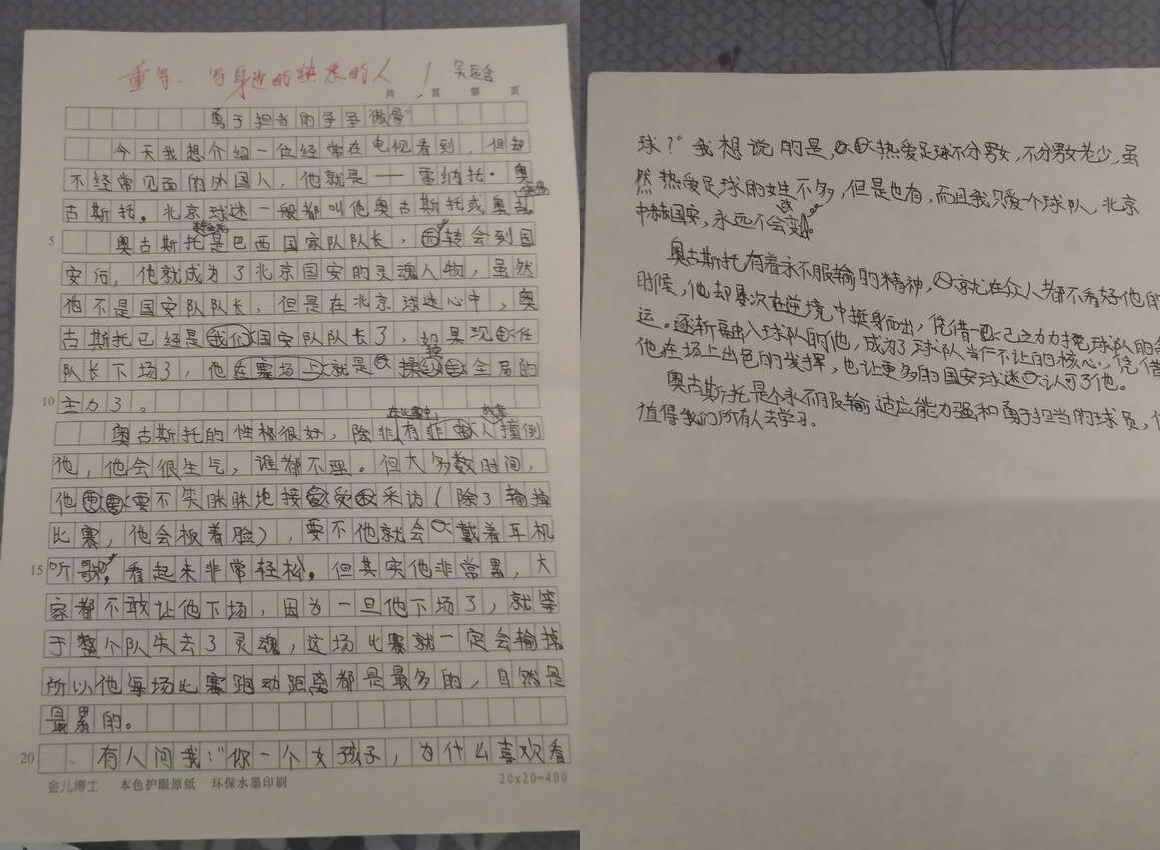 重写、写身边的熟悉的人
共 页 第 页
勇于担当的学学“傲骨”
今天我想介绍一位经常在电视看到，但却
不经常见面的外国人，他就是——雷纳托·奥
古斯托。北京球迷一般都叫他奥古斯托或奥古。
5 奥古斯托是巴西国家队队长，转会到国
安后，他就成为了北京国安的灵魂人物，虽然
他不是国安队队长，但是在北京球迷心中，奥
古斯托已经是我们国安队队长了，如果现任
队长下场了，他在赛场上就是操全局的
10 主力了。
奥古斯托的性格很好，除非有人撞倒
他，他会很生气，谁都不理。但大多数时间，
他要不笑眯眯地接受采访（除了输掉
比赛，他会板着脸），要不他就会戴着耳机
15 听歌，看起来非常轻松。但其实他非常累，大
家都不敢让他下场，因为一旦他下场了，就等
于整个队失去了灵魂，这场比赛就一定会输掉
所以他每场比赛跑动距离都是最多的，自然是
最累的。
20 有人问我：“你一个女孩子，为什么喜欢看
金儿博士 本色护眼原纸 环保水墨印刷 20x20=400
球？”我想说的是，热爱足球不分男女，不分男女老少，虽
然热爱足球的女生不多，但是也有，而且我只爱一个球队，北京
中赫国安，永远不会变。
奥古斯托有着永不服输的精神，就在众人都不看好他的
时候，他却屡次在逆境中挺身而出，凭借一己之力力挽球队的
运。逐渐融入球队的他，成为了球队当仁不让的核心，凭借
他在场上出色的发挥，也让更多的国安球迷认可了他。
奥古斯托是个永不服输适应能力强和勇于担当的球员，
值得我们所有人去学习。